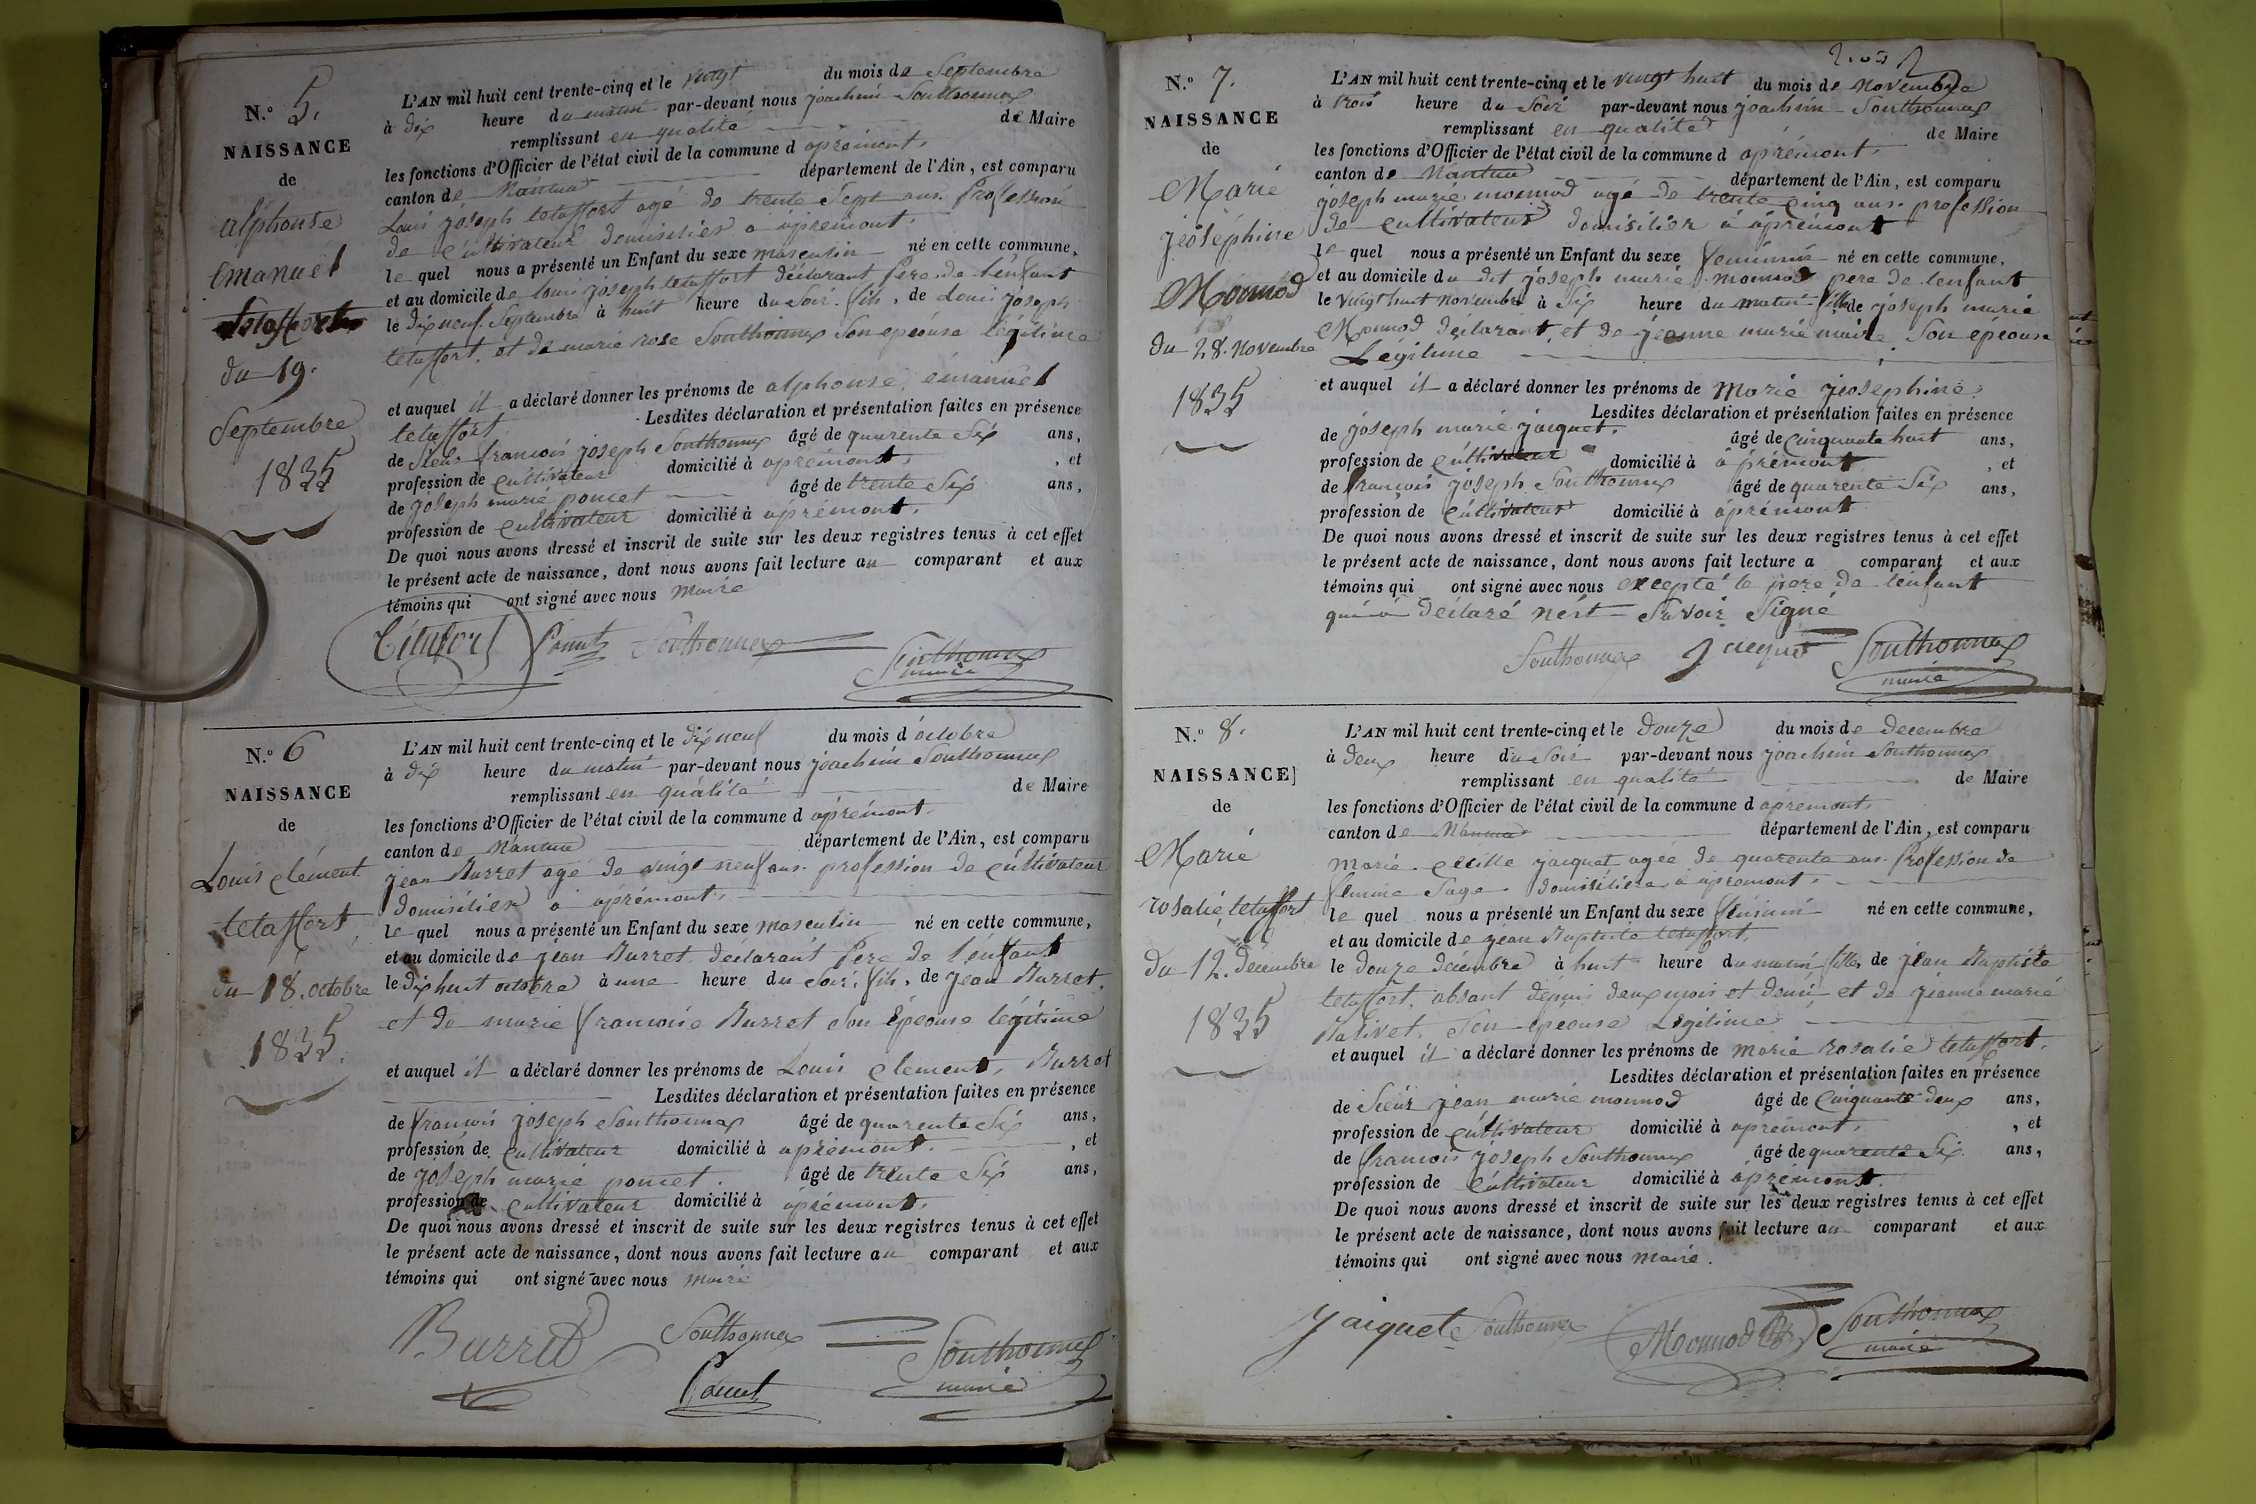 N.° 5.
NAISSANCE
de
alphonse
émanuel
du 19.
Septembre
1835
L'AN mil huit cent trente-cinq et le vingt du mois de Septembre
à dix heure du matin par-devant nous joachim Southonnax
remplissant en qualité de Maire
les fonctions d'Officier de l'état civil de la commune d apremont.
canton de Nantua département de l'Ain, est comparu
Louis joseph tetaffort agé de trente Sept ans. Profession
de cultivateur domicilier à apremont.
le quel nous a présenté un Enfant du sexe masculin né en cette commune,
et au domicile de louis joseph tetaffort déclarant Père de l'énfant
le dixneuf Septembre à huit heure du Soir. fils, de Louis joseph
tetaffort. et de marie rose Southonnax Son épeouse légitime
et auquel il a déclaré donner les prénoms de alphonse, émanuel
tetaffort Lesdites déclaration et présentation faites en présence
de Sieur francois joseph Southonnax âgé de quarente Six ans,
profession de cultivateur domicilié à apremont. , et
de joseph marie poncet âgé de trente Six ans,
profession de cultivateur domicilié à apremont.
De quoi nous avons dressé et inscrit de suite sur les deux registres tenus à cet effet
le présent acte de naissance, dont nous avons fait lecture au comparant et aux
témoins qui ont signé avec nous maire
Tétafort Poncet Southonnax Southonnax
maire
N.° 6
NAISSANCE
de
Louis clément
tetaffort
du 18. octobre
1835.
L'AN mil huit cent trente-cinq et le dixneuf du mois d'octobre
à dix heure du matin par-devant nous joachim Southonnax
remplissant en qualité de Maire
les fonctions d'Officier de l'état civil de la commune d apremont.
canton de Nantua département de l'Ain, est comparu
jean Burret agé de vingt neuf ans. profession de cultivateur
domicilier à apremont.
le quel nous a présenté un Enfant du sexe masculin né en cette commune,
et au domicile de jean Burret déclarant Père de l'énfant
le dixhuit octobre à une heure du Soir. fils, de jean Burret,
et de marie francoise Burret Son Epeouse légitime
et auquel il a déclaré donner les prénoms de Louis clement, Burret
Lesdites déclaration et présentation faites en présence
de francois joseph Southonnax âgé de quarente Six ans,
profession de cultivateur domicilié à apremont. , et
de joseph marie poncet. âgé de trente Six ans,
profession de cultivateur domicilié à apremont.
De quoi nous avons dressé et inscrit de suite sur les deux registres tenus à cet effet
le présent acte de naissance, dont nous avons fait lecture au comparant et aux
témoins qui ont signé avec nous maire
Burret Southonnax Southonnax
Poncet maire
N.° 7.
NAISSANCE
de
Marie
jeoséphine
Monnod
du 28. novembre
1835
L'AN mil huit cent trente-cinq et le vingt huit du mois de novembre
à trois heure du Soir par-devant nous joachim Southonnax
remplissant en qualité de Maire
les fonctions d'Officier de l'état civil de la commune d apremont.
canton de Nantua département de l'Ain, est comparu
joseph marie monnod agé de trente cinq ans. profession
de cultivateur domicilier à apremont
le quel nous a présenté un Enfant du sexe feminin né en cette commune,
et au domicile du dit joseph marie monnod pere de lenfant
le vingt huit novembre à Six heure du matin fille de joseph marie
Monnod déclarant, et de jeanne marie maire Son epeouse
Légitime
et auquel il a déclaré donner les prénoms de Marie jeosephine.
Lesdites déclaration et présentation faites en présence
de joseph marie jacquet. âgé de Cinquante huit ans,
profession de cultivateur domicilié à apremont , et
de francois joseph Southonnax âgé de quarente Six ans,
profession de cultivateur domicilié à apremont
De quoi nous avons dressé et inscrit de suite sur les deux registres tenus à cet effet
le présent acte de naissance, dont nous avons fait lecture a comparant et aux
témoins qui ont signé avec nous excepté le pere de lenfant
qui a déclaré nést Savoir Signé
Southonnax Jacquet Southonnax
maire
N.° 8.
NAISSANCE
de
Marie
rosalie, tetaffort
du 12. décembre
1835
L'AN mil huit cent trente-cinq et le douze du mois de decembre
à deux heure du Soir par-devant nous joachim Southonnax
remplissant en qualité de Maire
les fonctions d'Officier de l'état civil de la commune d apremont.
canton de Nantua département de l'Ain, est comparu
marie cecille jacquet agée de quarente ans. Profession de
femme Sage. domicilière à apremont.
le quel nous a présenté un Enfant du sexe féminin né en cette commune,
et au domicile de jean Baptiste tetaffort.
le douze décembre à huit heure du matin fille, de jean Baptiste
tetaffort. absant depuis deux mois et demi et de jeanne marie
Balivet. Son epeouse Légitime
et auquel il a déclaré donner les prénoms de marie rosalie tetaffort.
Lesdites déclaration et présentation faites en présence
de Sieur jean marie monnod âgé de Cinquante deux ans,
profession de cultivateur domicilié à apremont. , et
de francois joseph Southonnax âgé de quarente Six. ans,
profession de cultivateur domicilié à apremont.
De quoi nous avons dressé et inscrit de suite sur les deux registres tenus à cet effet
le présent acte de naissance, dont nous avons fait lecture au comparant et aux
témoins qui ont signé avec nous maire.
Jaiquet Southonnax Monnod Southonnax
maire